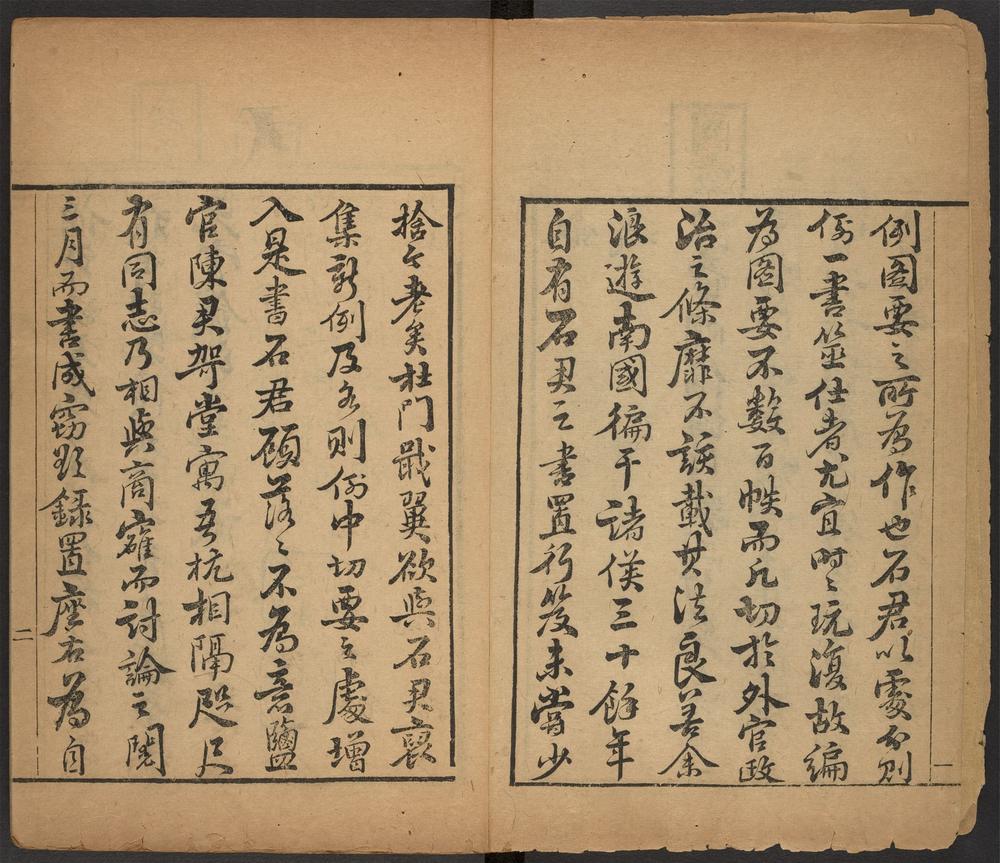 例圖要之所為作也石君以處分則
例一書筮仕者尤宜時〻玩復故編
為圖要不數百帙而凡切於外官政
治之條靡不該載其法良善余
浪遊南國徧干諸侯三十餘年
自有石君之書置行笈未嘗少
一
捨今老矣杜門戢翼欲與石君裒
集新例及各則例中切要之處增
入是書石君頋落〻不為意鹽
官陳君崿堂寓吾杭相隔咫尺
有同志乃相與商確而討論之閱
三月而書成竊欣錄置座右為自
二